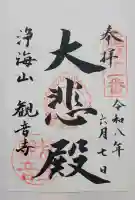 奉拝
令和八年六月七日
大悲殿
浄海山
観音寺